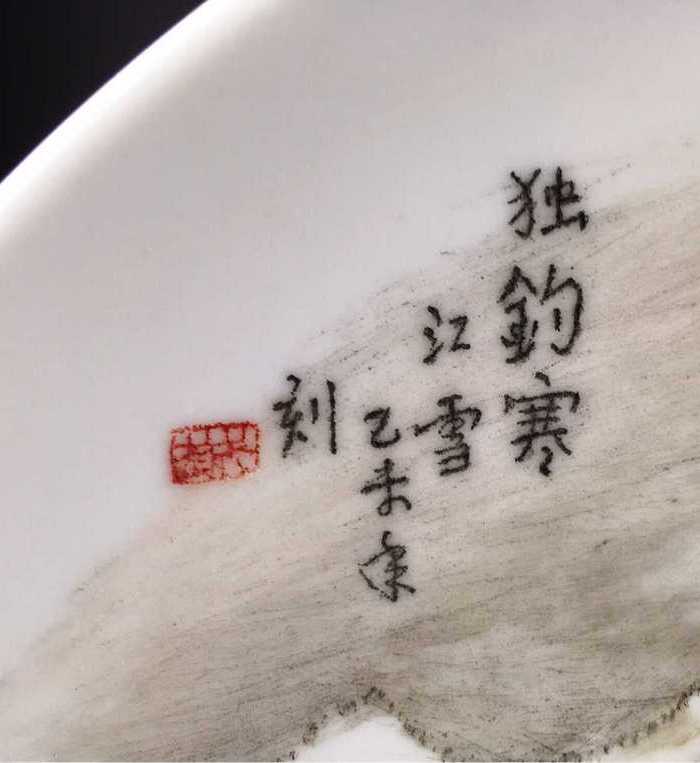 独釣寒
江雪
乙未年
刻